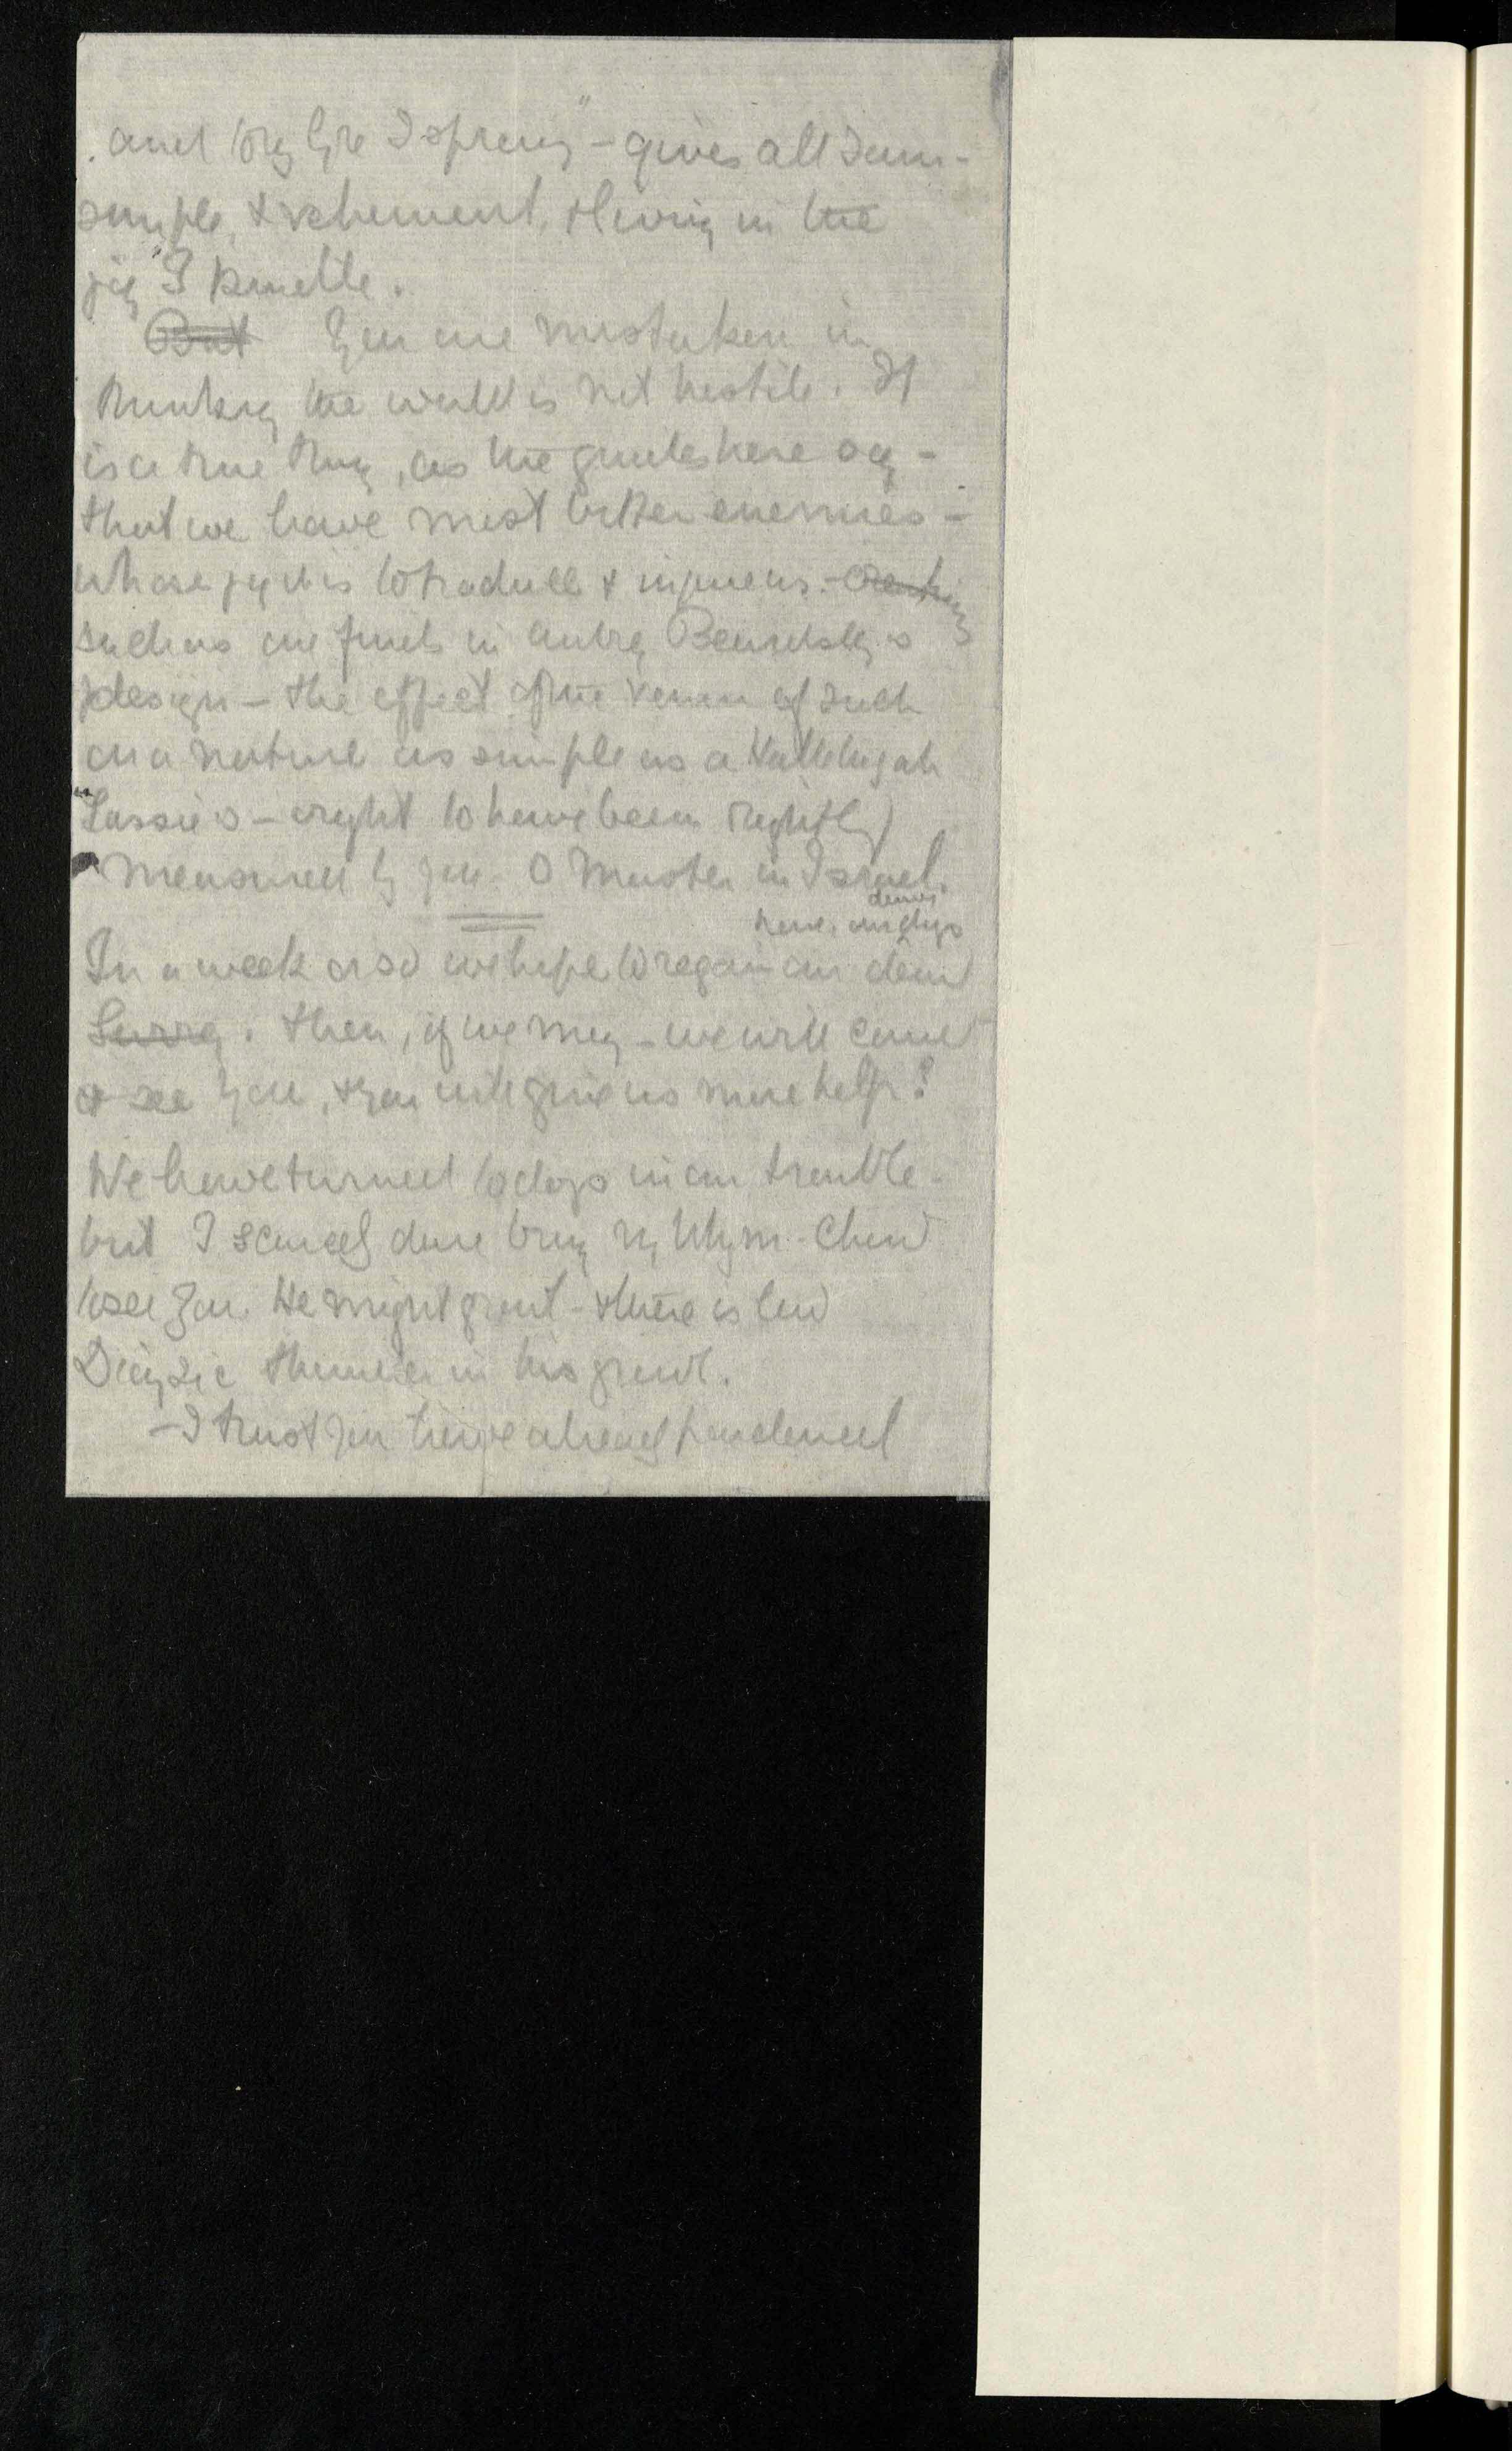 and to my lyre I sprung" – gives all I am –
simple, & vehement, & living in the
joy I
But You are mistaken in
thinking the world is not hostile. It
is a true thing, as the here say –
that we have most bitter enemies –
whose joy it is to traduce & injure us. –
such as one finds in Aubrey Beardsley's
design – the effect of the venom of such
on a nature as simple as a Hallelujah
Lassie's – ought to have been rightly
measured by you – O Master in Israel.
downs
have our dogs
In a week or so we hope to regain our dear
Surrey. Then, if we may – we will come
& see you, & you will give us more help?
We have turned to dogs in our trouble –
but I scarcely dare bring my Whym-Chow
to see you. He might growl – & there is
thunder in his growl.
– I trust you have already pardoned